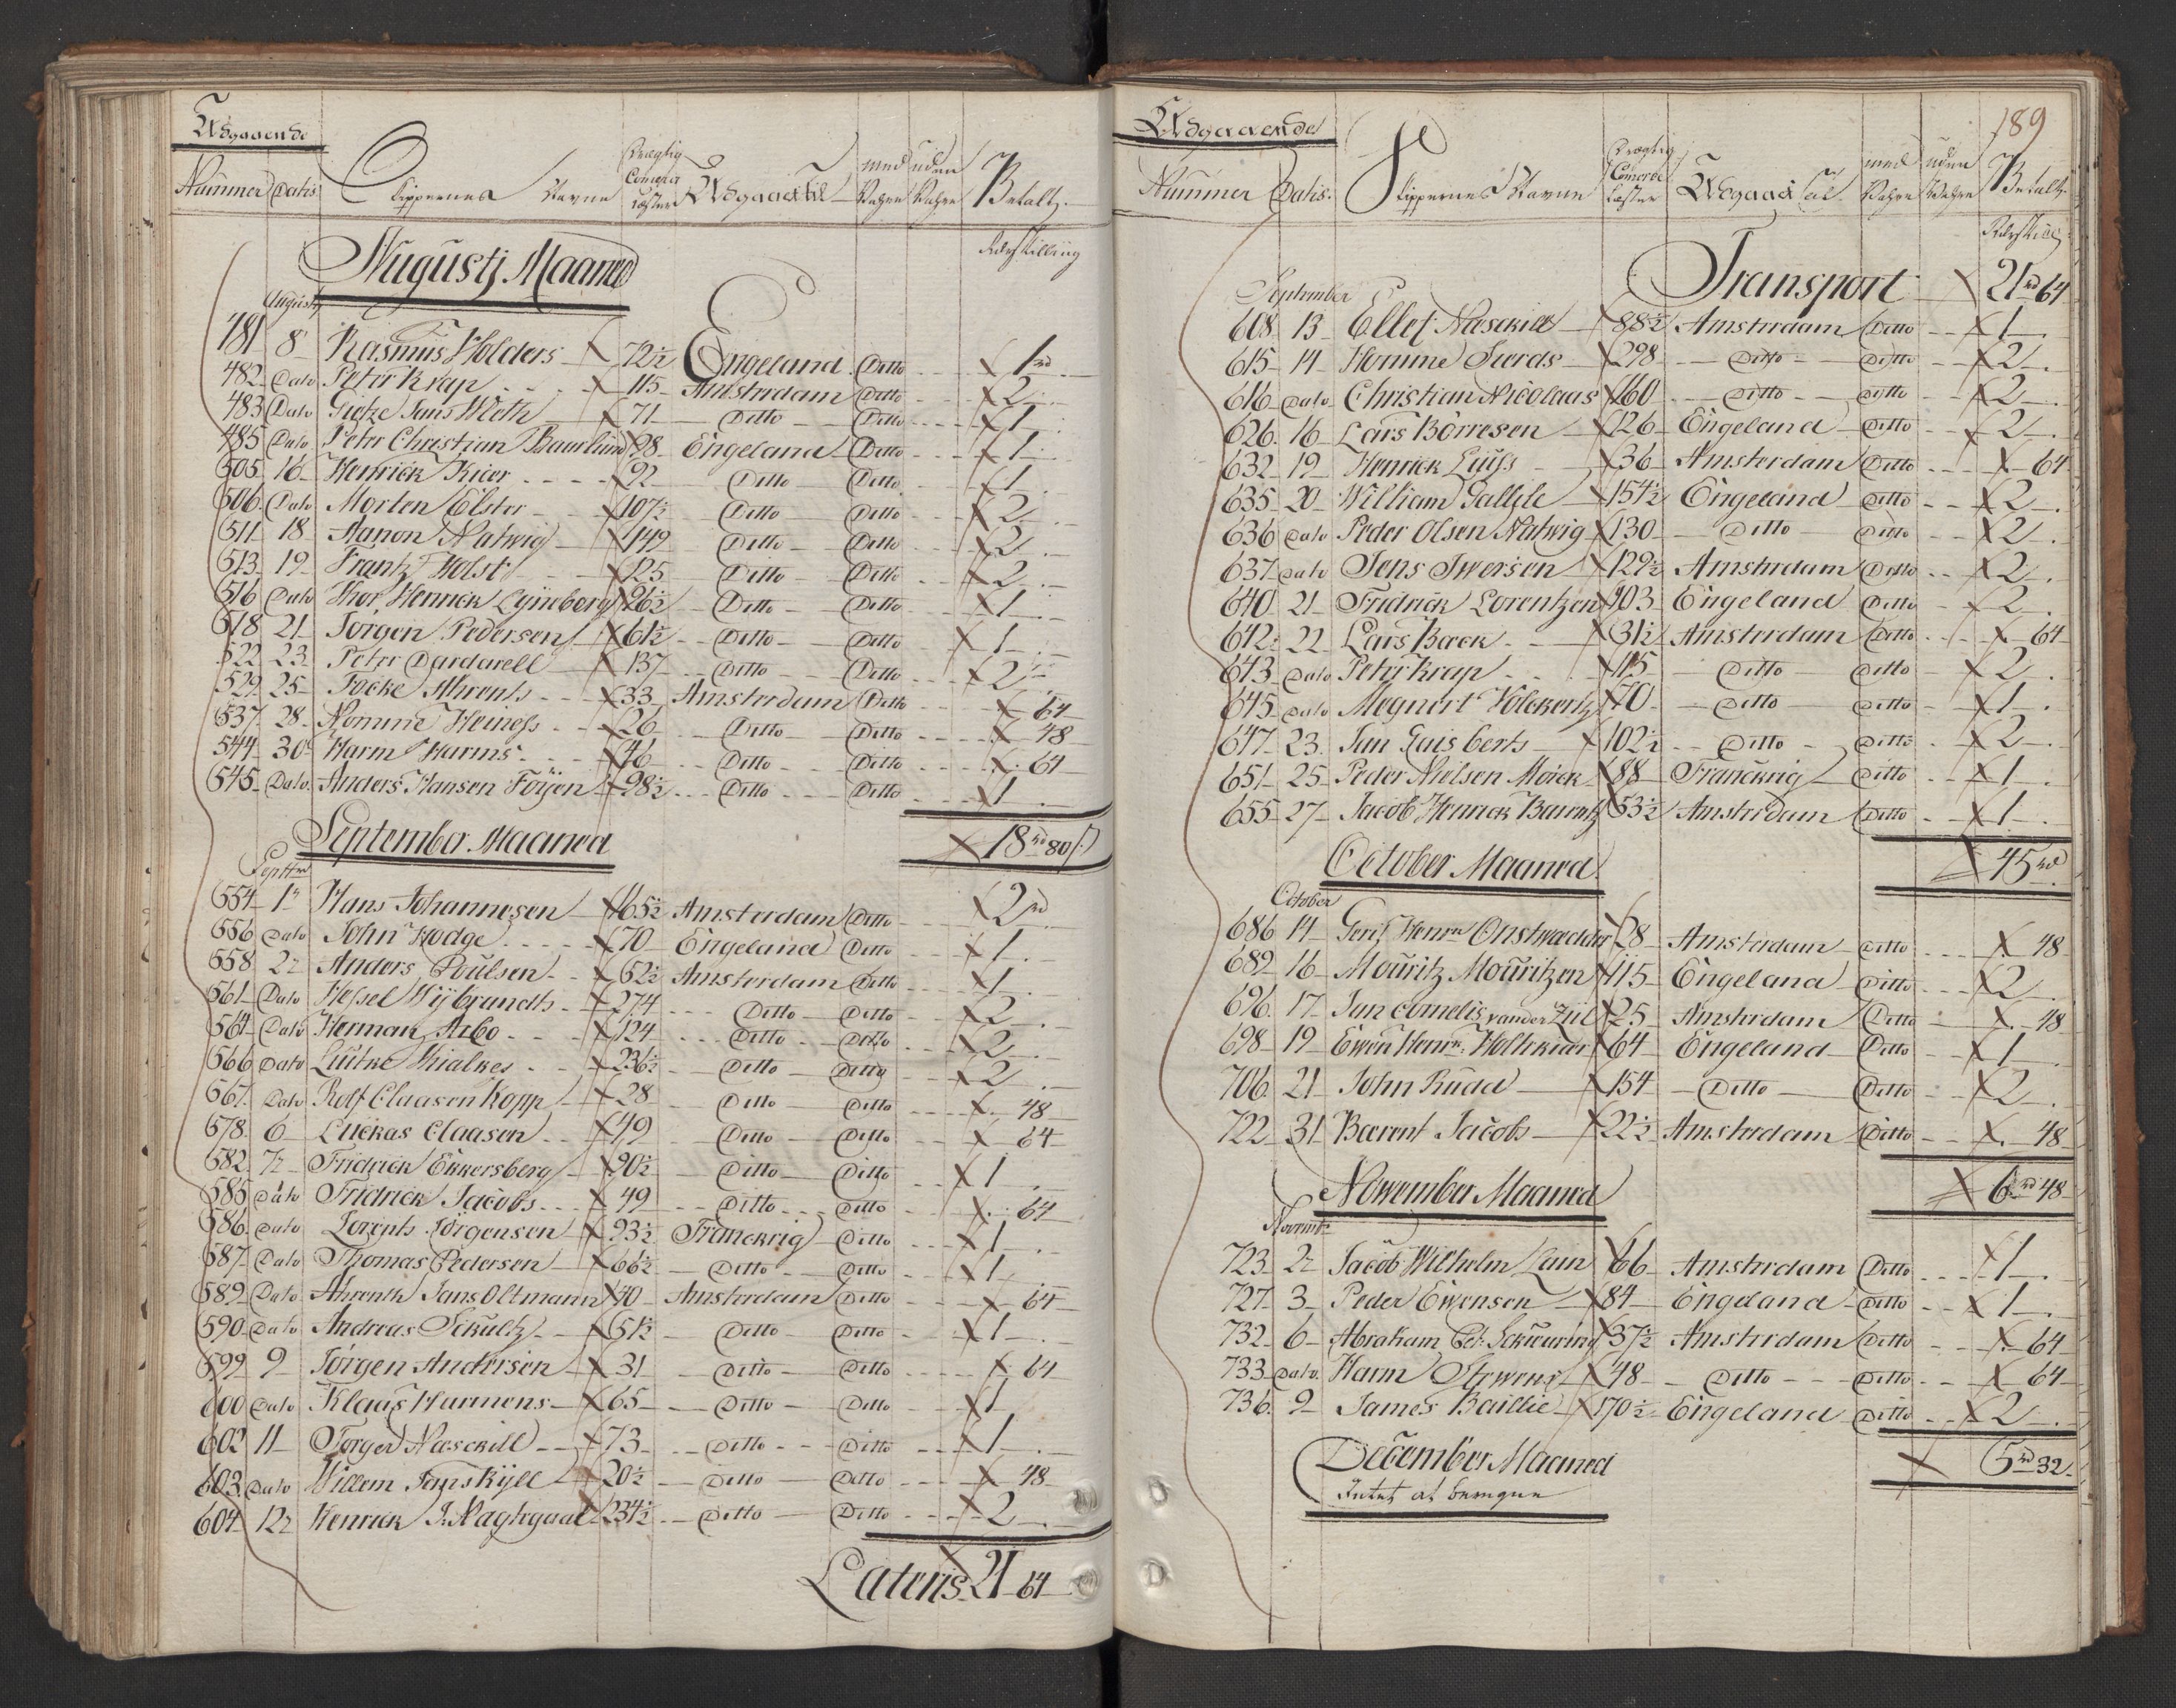 Udgaaende
Nummer Datis Skippernes Navne Drægtig Comerce Læster Udgaaed til med Vahre uden Vahre Betalt
Rdr Skilling
Augustj Maaned
Augustj
481 8 Rasmus Holders 72½ Engeland Ditto 1 rd
482 Dato Peter Krap 115 Amsterdam Ditto 2
483 Dato Gietze Jans Weth 71 Ditto Ditto 1
485 Dato Peter Christian Baurlund 98 Engeland Ditto 1
505 16 Henrick Kier 92 Ditto Ditto 1
506 Dato Morten Elster 107½ Ditto Ditto 2
511 18 Aanon Natwig 149 Ditto Ditto 2
513 19 Frantz Holst 125 Ditto Ditto 2
516 Dato Thor Henrick Lyneborg 96½ Ditto Ditto 1
518 21 Jørgen Pedersen 61½ Ditto Ditto 1
522 23 Peter Dardarell 137 Ditto Ditto 2
529 25 Focke Ahrents 33 Amsterdam Ditto 64
537 28 Nomme Heiness 26 Ditto Ditto 48
544 30 Harm Harms 46 Ditto Ditto 64
545 Dato Anders Hansen Föyen 98½ Ditto Ditto 1
18 rd 80
September Maaned
Septbr
554 1 Hans Johannesen 165½ Amsterdam Ditto 2 rd
556 Dato John Hodge 70 Engeland Ditto 1
558 2 Anders Poulsen 52½ Amsterdam Ditto 1
561 Dato Hessel Wijbrandts 274 Ditto Ditto 2
564 Dato Herman Arbo 124 Ditto Ditto 2
566 Dato Lütke Thialkes 236½ Ditto Ditto 2
567 Dato Rolf Claasen Kopp 28 Ditto Ditto 48
578 6 Luckas Claasen 49 Ditto Ditto 64
582 7 Fridrick Ekkersberg 90½ Ditto Ditto 1
585 Dato Fridrick Jacobs 49 Ditto Ditto 64
586 Dato Lorents Jörgensen 93½ Franckrig Ditto 1
587 Dato Thomas Pedersen 66½ Ditto Ditto 1
589 Dato Ahrenth Jans Oltmann 40 Amsterdam Ditto 64
590 Dato Andreas Schultz 51½ Ditto Ditto 1
599 9 Jörgen Andersen 31 Ditto Ditto 64
600 Dato Klaas Harmens 65 Ditto Ditto 1
602 11 Torger Næsekill 73 Ditto Ditto 1
603 Dato Willem Jans Kyll 20½ Ditto Ditto 48
604 12 Henrick J. Nagtegaal 234½ Ditto Ditto 2
Lateris 21 64
Udgaaende
189
Nummer Datis Skippernes Navne Drægtig Comerce Læster Udgaaed til med Vahre uden Vahre Betalt
Rdr Skill
Transport 21 rd 64
September
608 13 Ellef Næsekill 88½ Amsterdam Ditto 1
615 14 Homme Sierds 298 Ditto Ditto 2
616 Dato Christian Nicolaas 160 Ditto Ditto 2
626 16 Lars Börresen 126 Engeland Ditto 2
632 19 Henrick Luyss 36 Amsterdam Ditto 64
635 20 William Gallile 154½ Engeland Ditto 2
636 Dato Peder Olsen Natwig 130 Ditto Ditto 2
637 Dato Jens Iwersen 129½ Amsterdam Ditto 2
640 21 Fridrick Lorentzen 103 Engeland Ditto 2
642 22 Lars Back 31½ Amsterdam Ditto 64
643 Dato Peter Krap 115 Ditto Ditto 2
645 Dato Megnert Volckertz 70 Ditto Ditto 1
647 23 Jan Gaisberts 102½ Ditto Ditto 2
651 25 Peder Nielsen Mörck 88 Franckrig Ditto 1
655 27 Jacob Henrick Barentz 53½ Amsterdam Ditto 1
45 rd
October Maaned
October
686 14 Gerrit Henrn Onstwedder 28 Amsterdam Ditto 48
689 16 Mouritz Mouritzen 115 Engeland Ditto 2
696 17 Jan Cornelis vander Ziil 25 Amsterdam Ditto 48
698 19 Ewen Henr. Holtkiær 64 Engeland Ditto 1
706 21 John Rudd 154 Ditto Ditto 2
722 31 Baerent Jacobs 22½ Amsterdam Ditto 48
6 rd 48
Nowember Maaned
Novembr
723 2 Jacob Wilhelm Lain 66 Amsterdam Ditto 1
727 3 Peder Ewensen 84 Engeland Ditto 1
732 6 Abraham Pet. Schuuring 37½ Amsterdam Ditto 64
733 Dato Harm Stewens 48 Ditto Ditto 64
736 9 James Baillie 170½ Engeland Ditto 2
5 rd 32
December Maaned
Intet at beregne